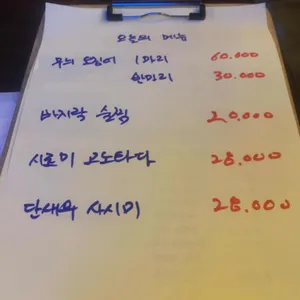 오늘의 메뉴
무늬 오징어 1마리 60.000
반마리 30.000
바지락 술찜 20.000
시로미 고노타다 28.000
단새우 사시미 28.000